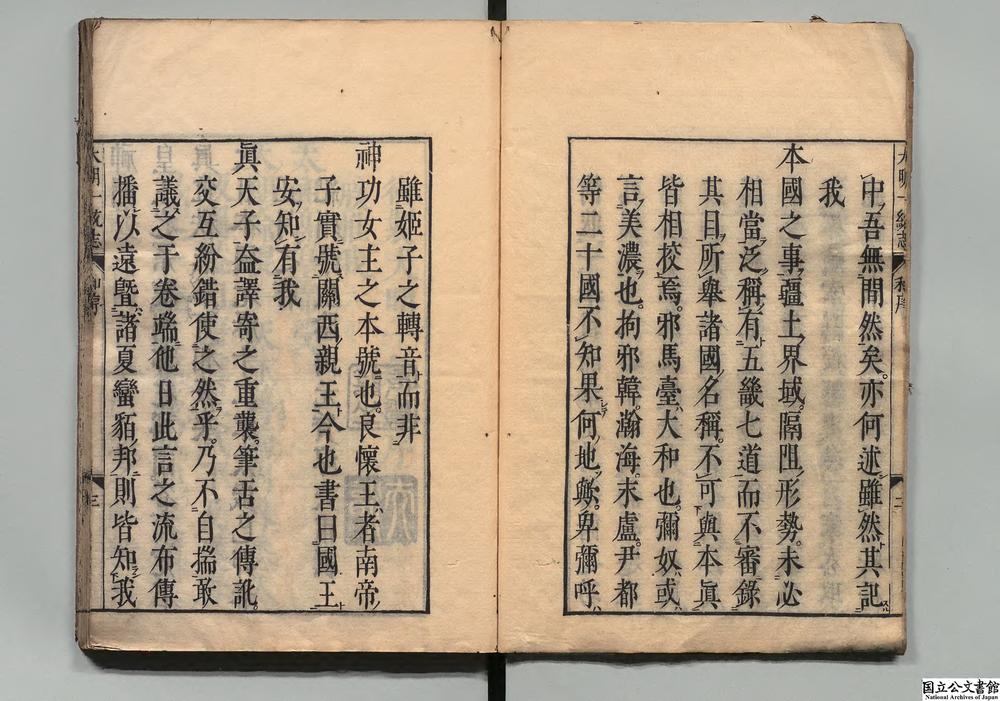 中吾無間然矣亦何述雖然其記
我
本國之事疆土界域隔阻形勢未必
相當泛稱有五畿七道而不審錄
其目所舉諸國名稱不可與本眞
皆相挍焉邪馬臺大和也彌奴或
言美濃也拘邪韓瀚海末盧尹都
等二十國不知果何地歟卑彌呼
雖姬子之轉音而非
神功女主之本號也良懷王者南帝
子實號關西親王今也書曰國王
安知有我
眞天子益譯寄之重襲筆舌之傳訛
交互紛錯使之然乎乃不自揣敢
議之于卷端他日此言之流布傳
播以遠曁諸夏蠻貊邦則皆知我
大明一統志
三
国立公文書館
National Archives of Japan